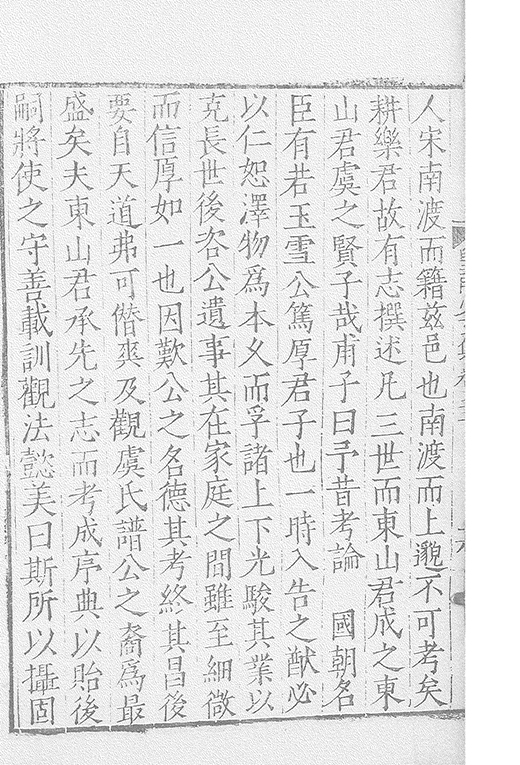 人宋南渡而籍茲邑也南渡而上邈不可考矣
耕樂君故有志撰述凡三世而東山君成之東
山君虞之賢子哉甫子曰予昔考論　國朝名
臣有若玉雪公篤厚君子也一時入告之猷必
以仁恕澤物為本乂而孚諸上下光駿其業以
克長世後咨公遺事其在家庭之間雖至細微
而信厚如一也因歎公之名德其考終其昌後
要自天道弗可僭爽及觀虞氏譜公之裔為最
盛矣夫東山君承先之志而考成序典以貽後
嗣將使之守善載訓觀法懿美曰斯所以攝固